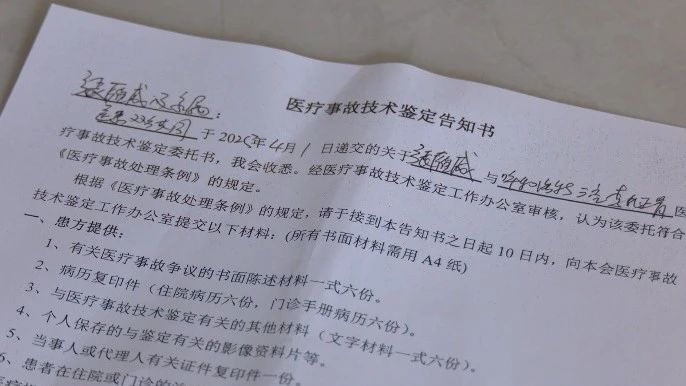 医疗事故技术鉴定告知书
:
于202 年4月1日递交的关于 与 医
疗事故技术鉴定委托书,我会收悉。经医疗事故技术鉴定工作办公室审核,认为该委托符合
《医疗事故处理条例》的规定。
根据《医疗事故处理条例》的规定,请于接到本告知书之日起10日内,向本会医疗事故
技术鉴定工作办公室提交以下材料:(所有书面材料需用 A4 纸)
一、患方提供:
1、有关医疗事故争议的书面陈述材料一式六份。
2、病历复印件(住院病历六份,门诊手册病历六份)。
3、与医疗事故技术鉴定有关的其他材料(文字材料一式六份)。
4、个人保存的与鉴定有关的影像资料片等。
5、当事人或代理人有关证件复印件一份。
6、患者在住院或门诊的